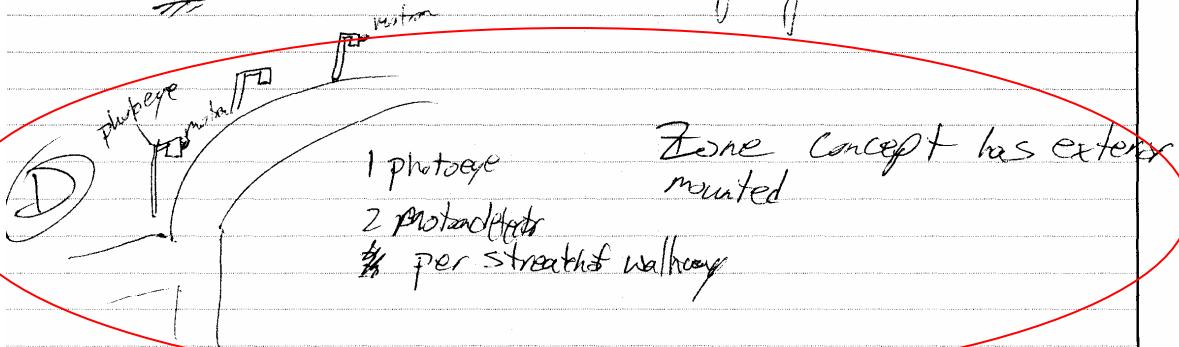 motion
photoeye
motion
D
1 photoeye
2 motiondetects
per streatchof walkway
Zone concept has exterior
mounted